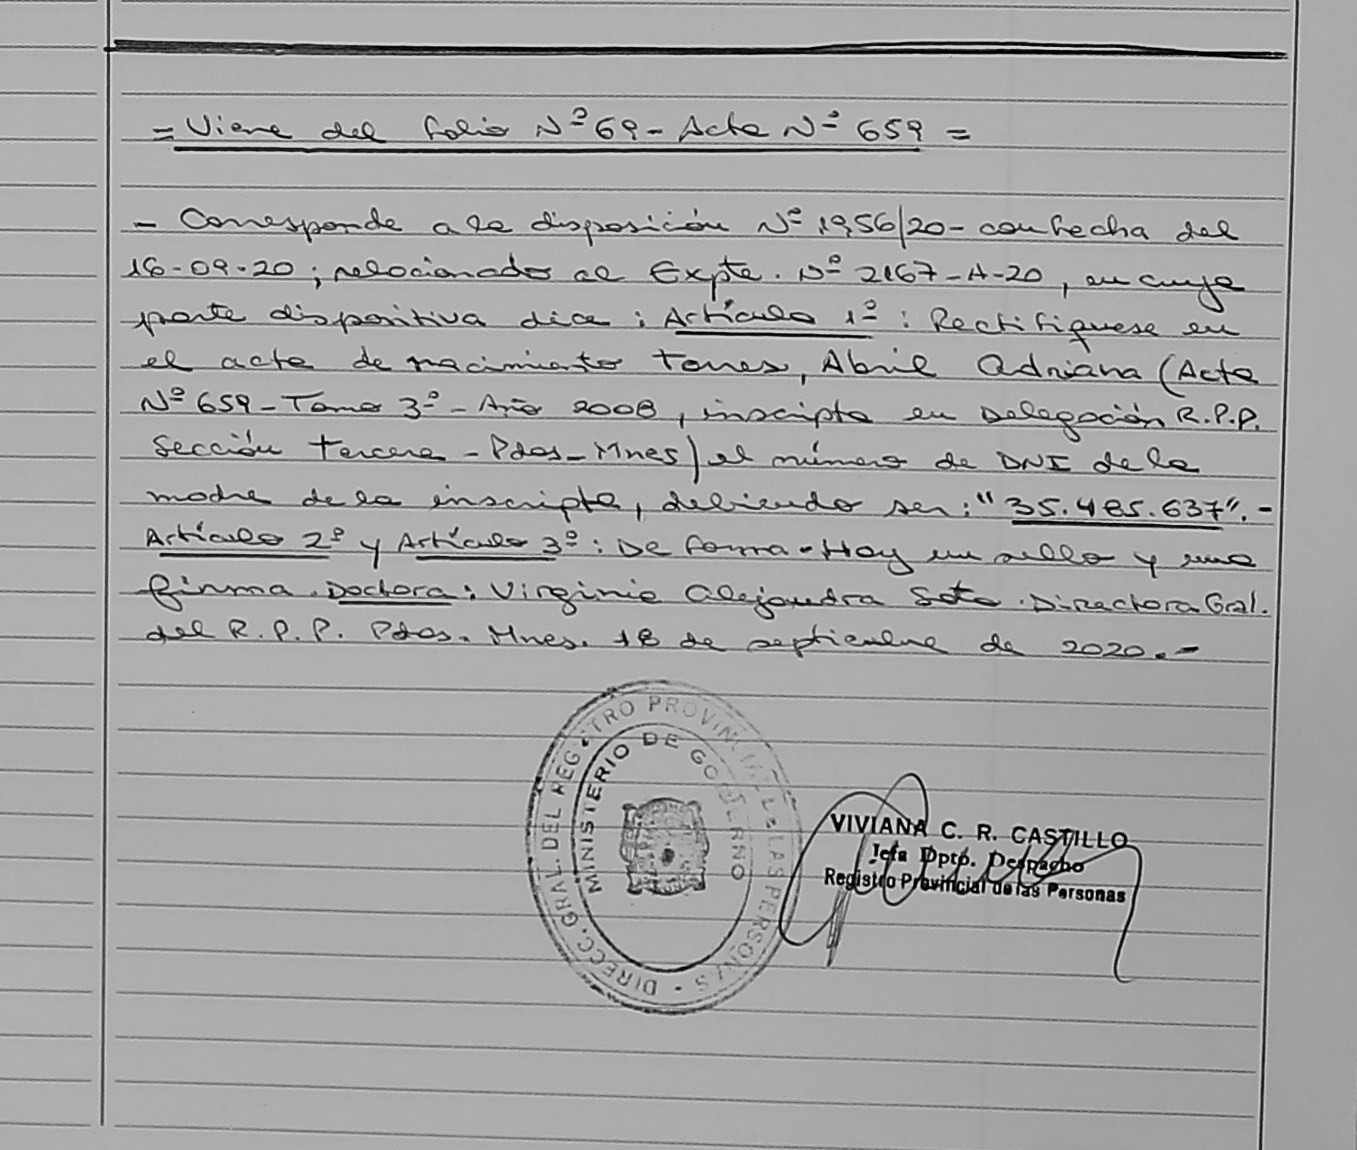 = Viene del folio Nº 69 - Acta Nº 659 =
- Corresponde a la disposición Nº 1956/20 - con fecha del
16-09-20; relacionados al Expte. Nº 2167-A-20, en cuya
parte dispositiva dice: Artículo 1º: Rectifíquese en
el acta de nacimiento Torres, Abril Adriana (Acta
Nº 659 - Tomo 3º - Año 2008, inscripta en Delegación R.P.P.
Sección tercera - Pdas - Mnes) el número de DNI de la
madre de la inscripta, debiendo ser: "35.485.637".-
Artículo 2º y Artículo 3º: De forma - Hay un sello y una
firma. Doctora: Virginia Alejandra Soto. Directora Gral.
del R.P.P. Pdas. Mnes. 18 de septiembre de 2020.-
DIRECC. GRAL. DEL REGISTRO PROVINCIAL DE LAS PERSONAS
MINISTERIO DE GOBIERNO
VIVIANA C. R. CASTILLO
Jefa Dpto. Despacho
Registro Provincial de las Personas